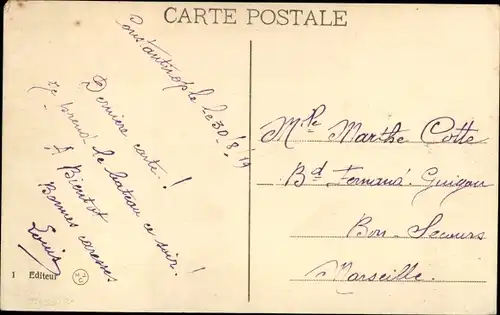 CARTE POSTALE
Constantinople le 30/8/19
Dernière carte!
Je prends le bateau ce soir!
A Bientot
Bonnes caresses
Louis
Mlle Marthe Cotte
Bd Fernand. Guigou
Bon-Secours
Marseille.
1 Editeur